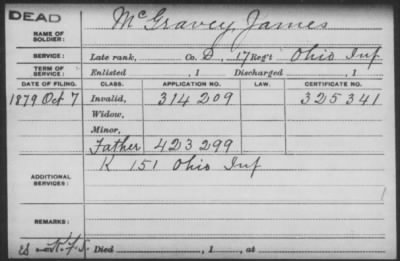 DEAD
NAME OF SOLDIER: McGravey, James
SERVICE: Late rank, Co. D, 17 Reg't Ohio Inf
TERM OF SERVICE: Enlisted , 1 Discharged , 1
DATE OF FILING. CLASS. APPLICATION NO. LAW. CERTIFICATE NO.
1879 Oct 7 Invalid, 314209 325341
Widow,
Minor,
Father 423299
ADDITIONAL SERVICES: K 151 Ohio Inf
REMARKS:
Died , 1 , at